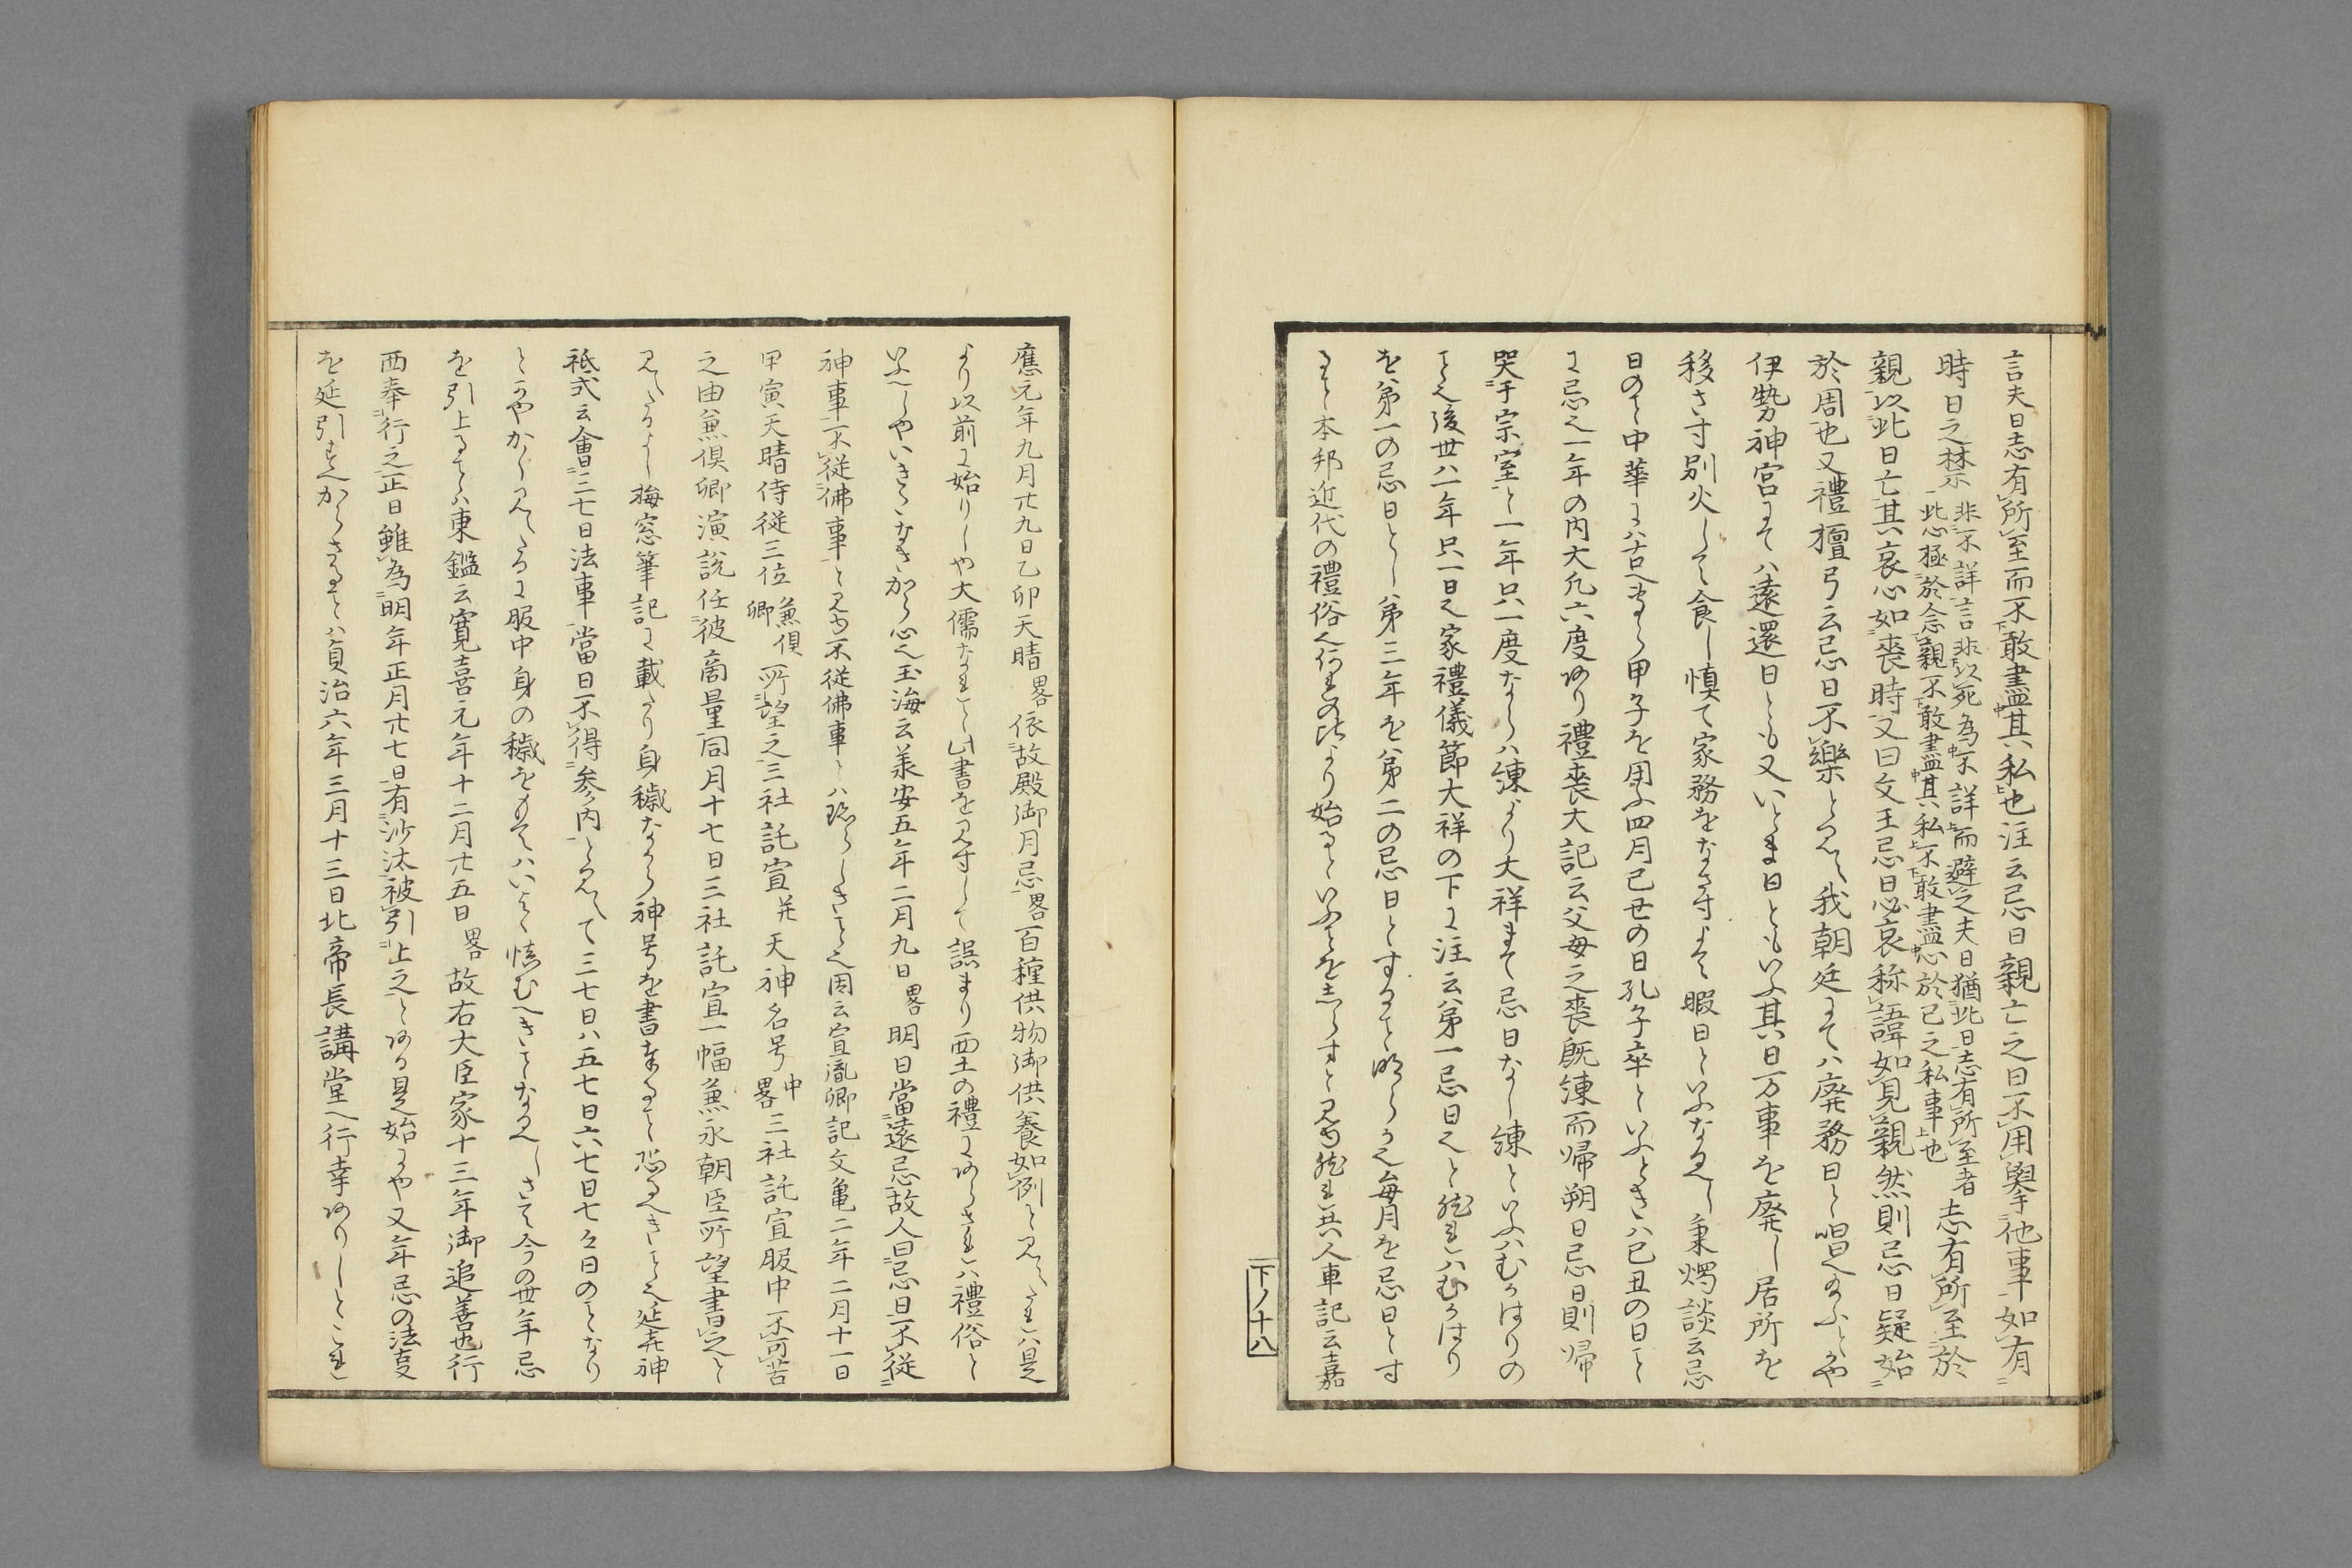 言夫日志有所至而不敢盡其私也注云忌日親亡之日不用擧他事如有
時日之禁 非不詳言非以死為不詳而避之夫日猶此日志有所至者 志有所至於
此心極於念親不敢盡其私不敢盡心於已之私事也
親以此日亡其哀心如喪時又曰文王忌日必哀称諱如見親然則忌日疑始
於周也又禮檀弓云忌日不樂とみへ我朝廷にては廃務日と唱へ給ふとかや
伊勢神宮にては遠還日とも又いとま日ともいふ其日万事を廃し居所を
移さす別火して食し慎て家務をなさすよて暇日といふなるへし秉燭談云忌
日のこと中華には古へより甲子を用ふ四月已丑の日孔子卒といふときは已丑の日こと
に忌之一年の内大凡六度あり禮喪大記云父母之喪既練而帰朔日忌日則帰
哭于宗室と一年只一度ならは練より大祥まて忌日なし練といふはむかはりの
こと也後世は一年只一日也家禮儀節大祥の下に注云第一忌日也と然れはむかはり
を第一の忌日とし第三年を第二の忌日とすること明らか也毎月を忌日とす
ること本邦近代の禮俗也何れの比より始るといふことを志らすと見ゆ然れ共人車記云嘉
應元年九月廿九日乙卯天晴畧依故殿御月忌畧百種供物御供養如例とみへたれは是
より以前に始りしや大儒なれと此書を見すして誤まり西土の禮にあらされは禮俗と
いふへしやいさゝかなき心也玉海云羕安五年二月九日畧明日當遠忌故人曰忌日不従
神事不従佛事と見ゆ不従佛事とは珍らしきこと也因云宣胤卿記文亀二年二月十一日
甲寅天晴侍従三位兼倶卿所望之三社託宣并天神名号中畧三社託宣服中不可苦
之由兼倶卿演説任彼商量同月十七日三社託宣一幅兼永朝臣所望書之と
みへたるよし梅窓筆記に載たり身穢なから神号を書奉ること恐るへきこと也延㐂神
祇式云會二七日法事當日不得参内とみへて三七日は五七日六七日七々日のことなり
とかやかくみへたるに服中身の穢をもていはゝ慎むへきことなるへしさて今の世年忌
を引上ることは東鑑云寛喜元年十二月廿五日畧故右大臣家十三年御追善也行
西奉行之正日雖為明年正月廿七日有沙汰被引上之とある是始にや又年忌の法㕝
を延引すへからさることは貞治六年三月十三日北帝長講堂へ行幸ありしとこれ
下ノ十八